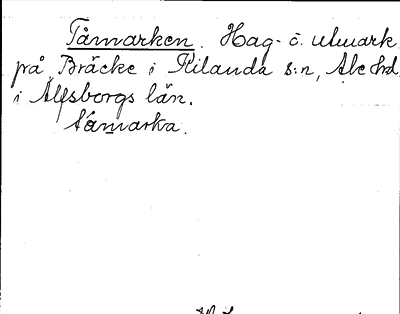 Tåmarken. Hag- o. utmark
på Bräcke i Kilanda s:n, Ale hd
i Älfsborgs län.
tåmarka.